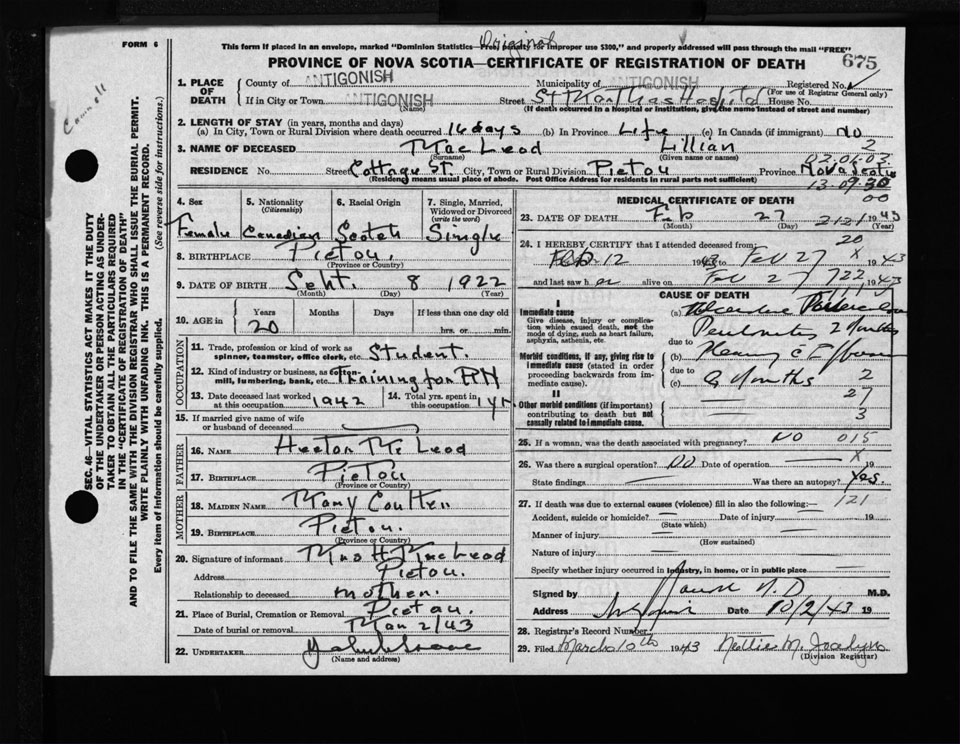 Original
FORM 6 This form if placed in an envelope, marked "Dominion Statistics—Free, penalty for improper use $300," and properly addressed will pass through the mail "FREE"
PROVINCE OF NOVA SCOTIA—CERTIFICATE OF REGISTRATION OF DEATH 675
1. PLACE OF DEATH County of ANTIGONISH Municipality of ANTIGONISH Registered No.
(For use of Registrar General only)
If in City or Town ANTIGONISH Street St Marthas Hospital House No.
(Name) (If death occurred in a hospital or institution, give the name instead of street and number)
2. LENGTH OF STAY (in years, months and days)
(a) In City, Town or Rural Division where death occurred 16 days (b) In Province Life (c) In Canada (if immigrant) No
3. NAME OF DECEASED MacLeod Lillian 2
(Surname) (Given name or names) 02.01.03
RESIDENCE No. Street Cottage St. City, Town or Rural Division Pictou Province Nova Scotia
(Residence means usual place of abode. Post Office Address for residents in rural parts not sufficient) 13.09.30
00
SEC. 46—VITAL STATISTICS ACT MAKES IT THE DUTY
OF THE UNDERTAKER OR PERSON ACTING AS UNDER-
TAKER TO OBTAIN ALL THE PARTICULARS REQUIRED
IN THE "CERTIFICATE OF REGISTRATION OF DEATH"
AND TO FILE THE SAME WITH THE DIVISION REGISTRAR WHO SHALL ISSUE THE BURIAL PERMIT.
WRITE PLAINLY WITH UNFADING INK. THIS IS A PERMANENT RECORD.
Every item of information should be carefully supplied. (See reverse side for instructions.)
4. Sex 5. Nationality (Citizenship) 6. Racial Origin 7. Single, Married, Widowed or Divorced (write the word)
Female Canadian Scotch Single
8. BIRTHPLACE Pictou
(Province or Country)
9. DATE OF BIRTH Sept. 8 1922
(Month) (Day) (Year)
10. AGE in Years Months Days If less than one day old
20 hrs. or min.
OCCUPATION
11. Trade, profession or kind of work as
spinner, teamster, office clerk, etc. Student
12. Kind of industry or business, as cotton-
mill, lumbering, bank, etc. Training for RN
13. Date deceased last worked at this occupation 1942 14. Total yrs. spent in this occupation 1 yr.
15. If married give name of wife
or husband of deceased
FATHER
16. NAME Hector McLeod
17. BIRTHPLACE Pictou
(Province or Country)
MOTHER
18. MAIDEN NAME Mary Coulter
19. BIRTHPLACE Pictou.
(Province or Country)
20. Signature of informant Mrs H. MacLeod
Address Pictou.
Relationship to deceased mother.
21. Place of Burial, Cremation or Removal Pictou
Date of burial or removal Mar 2/43
22. UNDERTAKER
(Name and address)
MEDICAL CERTIFICATE OF DEATH
23. DATE OF DEATH Feb 27 2121 1943
(Month) (Day) (Year)
24. I HEREBY CERTIFY that I attended deceased from: 20
Feb. 12 1943 to Feb 27 X 1943
and last saw her alive on Feb 27 722 1943
CAUSE OF DEATH
I
Immediate cause
Give disease, injury or complica-
tion which caused death, not the
mode of dying, such as heart failure,
asphyxia, asthenia, etc.
Morbid conditions, if any, giving rise to
immediate cause (stated in order
proceeding backwards from im-
mediate cause).
II
Other morbid conditions (if important)
contributing to death but not
causally related to immediate cause.
(a)
due to 2 Months
(b) Pleurisy c Effusion
due to
(c) 9 Months 2
27
3
25. If a woman, was the death associated with pregnancy? NO 015
26. Was there a surgical operation? NO Date of operation X 19
State findings Was there an autopsy? Yes.
27. If death was due to external causes (violence) fill in also the following:— 121
Accident, suicide or homicide? Date of injury 19
(State which)
Manner of injury
(How sustained)
Nature of injury
Specify whether injury occurred in industry, in home, or in public place
Signed by M.D M.D.
Address Date 10/2/43 19
28. Registrar's Record Number
29. Filed March 10th 1943 Nettie M. Joclyn
(Division Registrar)